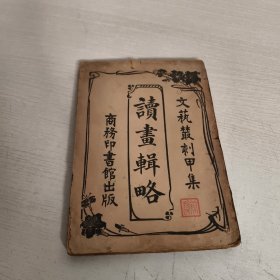 文藝叢刻甲集
讀畫輯略
商務印書館出版